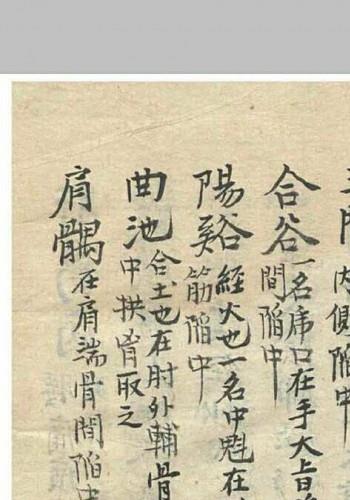 内側陷中
合谷一名虎口在手大旨
間陷中
陽谿經火也一名中魁在
筋陷中
曲池合土也在肘外輔骨
中拱胷取之
肩髃在肩端骨間陷中